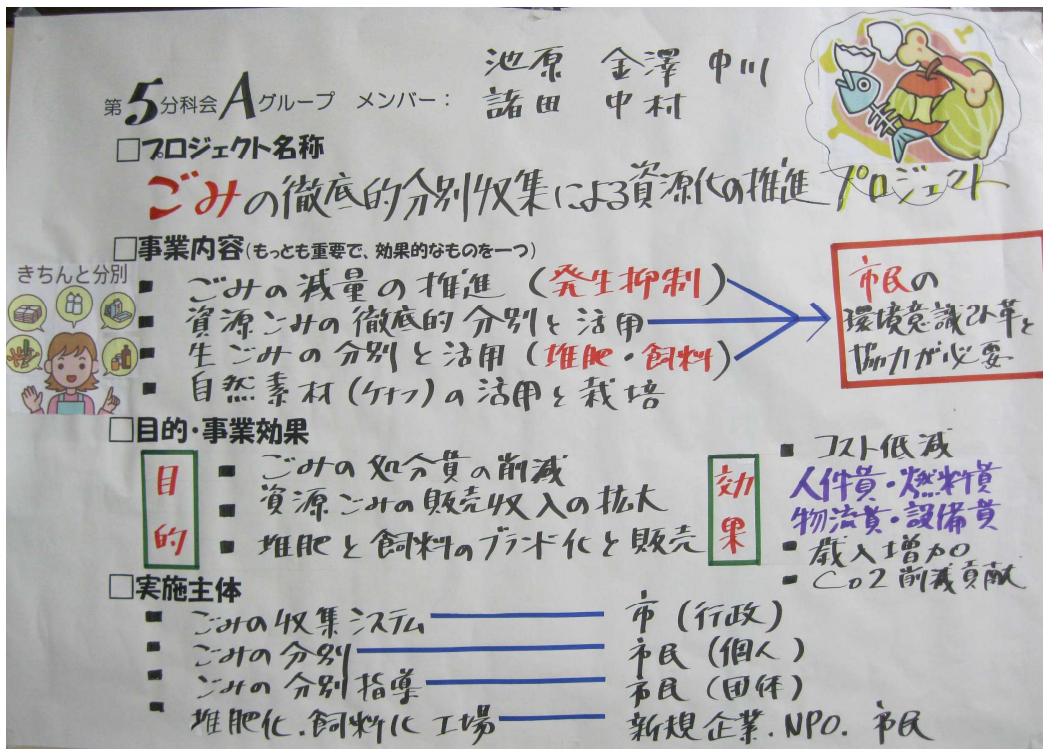 第5分科会Aグループ メンバー： 池原 金澤 中川
諸田 中村
□プロジェクト名称
ごみの徹底的分別収集による資源化の推進プロジェクト
□事業内容(もっとも重要で、効果的なものを一つ)
きちんと分別
■ ごみの減量の推進（発生抑制）
■ 資源ごみの徹底的分別と活用
■ 生ごみの分別と活用（堆肥・飼料）
■ 自然素材（ケナフ）の活用と栽培
市民の
環境意識改革と
協力が必要
□目的・事業効果
目的
■ ごみの処分費の削減
■ 資源ごみの販売収入の拡大
■ 堆肥と飼料のブランド化と販売
効果
■ コスト低減
人件費・燃料費
物流費・設備費
■ 歳入増加
■ CO2削減貢献
□実施主体
■ ごみの収集システム 市（行政）
■ ごみの分別 市民（個人）
■ ごみの分別指導 市民（団体）
■ 堆肥化.飼料化工場 新規企業.NPO.市民